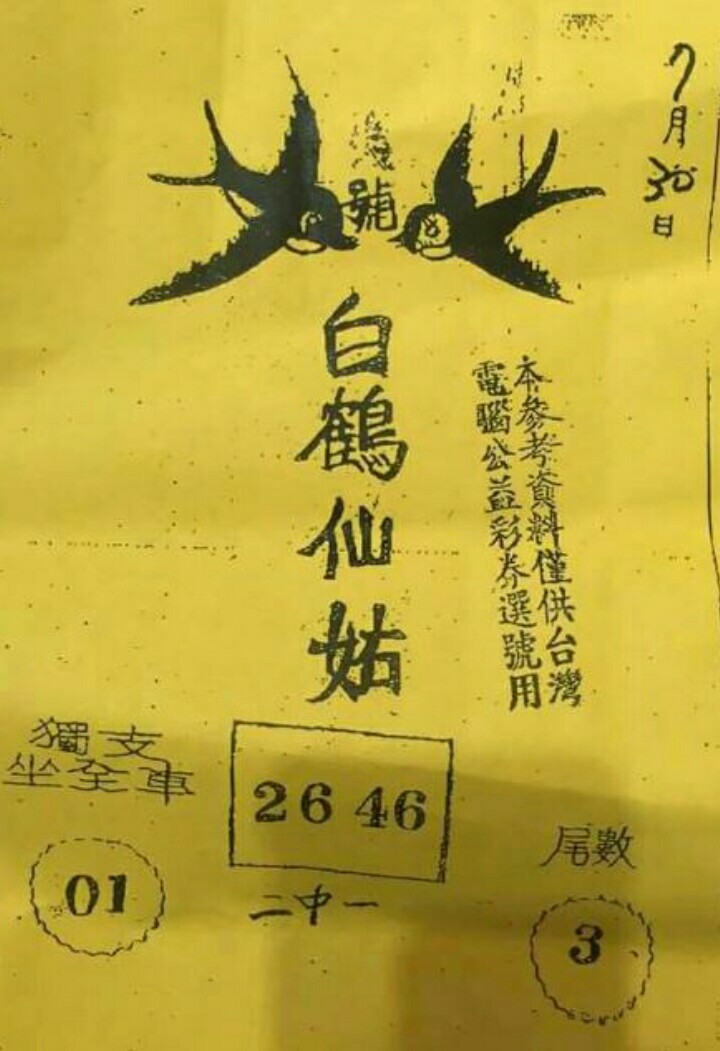 7月30日
號
白鶴仙姑
本參考資料僅供台灣
電腦公益彩券選號用
獨支
坐全車
01
26 46
二中一
尾數
3